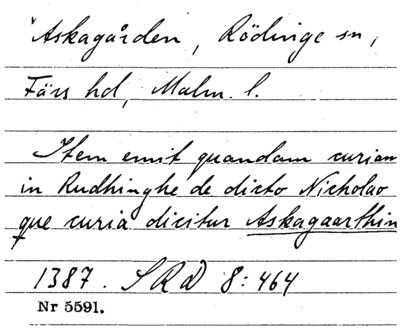 *Askagården, Rödinge sn,
Färs hd, Malm. l.
Item emit quandam curiam
in Rudhinghe de dicto Nicholao
que curia dicitur Askagaarthin
1387. SRD 8:464
Nr 5591.